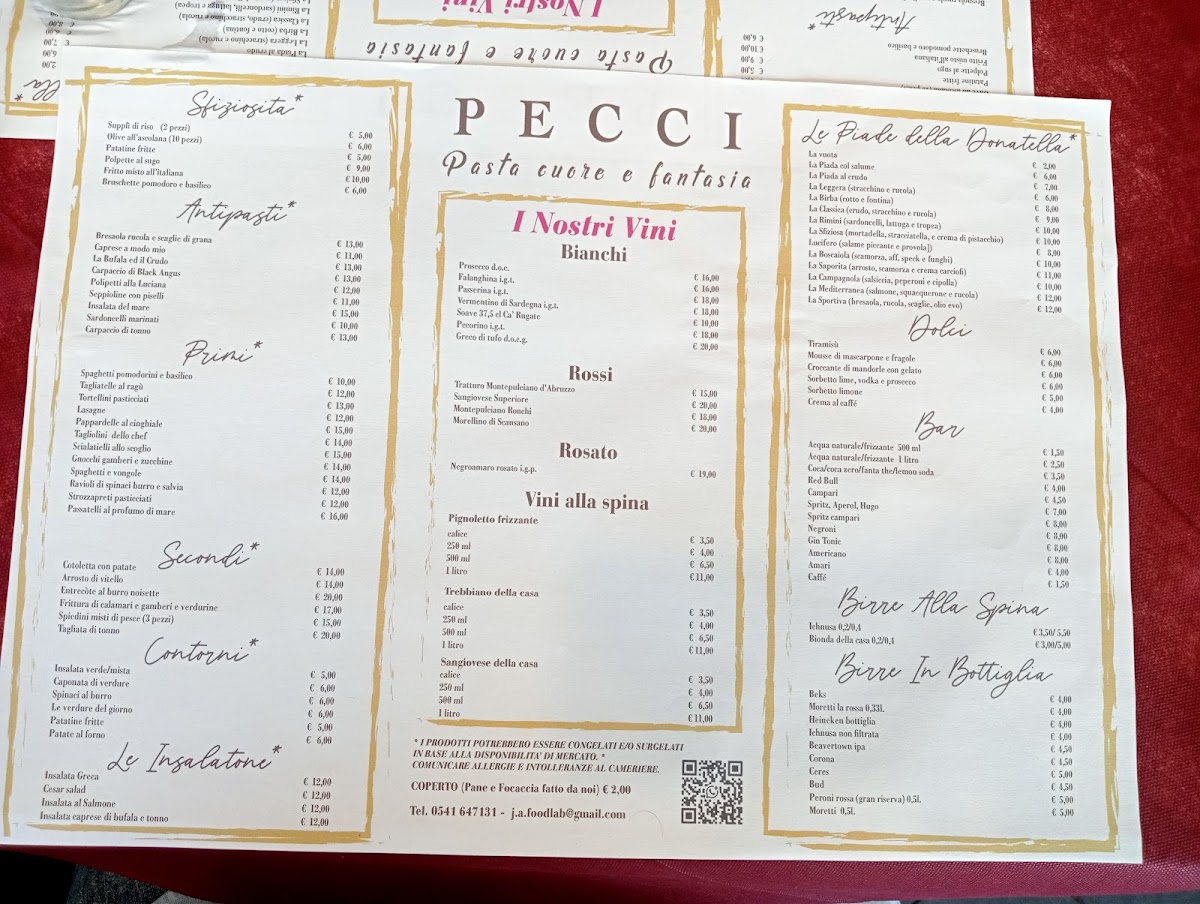 I Nostri Vini
Pasta cuore e fantasia
Antipasti*
Bruschette pomodoro e basilico
Fritto misto all'italiana
Polpette al sugo
Patatine fritte
€ 6,00
€ 10,00
€ 9,00
€ 5,00
La Rimini (sardoncelli, lattuga e tropea)
La Classica (crudo, stracchino e rucola)
La Birba (cotto e fontina)
La Leggera (stracchino e rucola)
La Piada al crudo
Sfiziosita*
Supplì di riso (2 pezzi) € 5,00
Olive all'ascolana (10 pezzi) € 6,00
Patatine fritte € 5,00
Polpette al sugo € 9,00
Fritto misto all'italiana € 10,00
Bruschette pomodoro e basilico € 6,00
Antipasti*
Bresaola rucola e scaglie di grana € 13,00
Caprese a modo mio € 11,00
La Bufala ed il Crudo € 13,00
Carpaccio di Black Angus € 13,00
Polipetti alla Luciana € 12,00
Seppioline con piselli € 11,00
Insalata del mare € 15,00
Sardoncelli marinati € 10,00
Carpaccio di tonno € 13,00
Primi*
Spaghetti pomodorini e basilico € 10,00
Tagliatelle al ragù € 12,00
Tortellini pasticciati € 13,00
Lasagne € 12,00
Pappardelle al cinghiale € 15,00
Tagliolini dello chef € 14,00
Scialatielli allo scoglio € 15,00
Gnocchi gamberi e zucchine € 14,00
Spaghetti e vongole € 14,00
Ravioli di spinaci burro e salvia € 12,00
Strozzapreti pasticciati € 12,00
Passatelli al profumo di mare € 16,00
Secondi*
Cotoletta con patate € 14,00
Arrosto di vitello € 14,00
Entrecòte al burro noisette € 20,00
Frittura di calamari e gamberi e verdurine € 17,00
Spiedini misti di pesce (3 pezzi) € 15,00
Tagliata di tonno € 20,00
Contorni*
Insalata verde/mista € 5,00
Caponata di verdure € 6,00
Spinaci al burro € 6,00
Le verdure del giorno € 6,00
Patatine fritte € 5,00
Patate al forno € 6,00
Le Insalatone*
Insalata Greca € 12,00
Cesar salad € 12,00
Insalata al Salmone € 12,00
Insalata caprese di bufala e tonno € 12,00
PECCI
Pasta cuore e fantasia
I Nostri Vini
Bianchi
Prosecco d.o.c. € 16,00
Falanghina i.g.t. € 16,00
Passerina i.g.t. € 18,00
Vermentino di Sardegna i.g.t. € 18,00
Soave 37,5 cl Ca' Rugate € 10,00
Pecorino i.g.t. € 18,00
Greco di tufo d.o.c.g. € 20,00
Rossi
Tratturo Montepulciano d'Abruzzo € 15,00
Sangiovese Superiore € 20,00
Montepulciano Ronchi € 18,00
Morellino di Scansano € 20,00
Rosato
Negroamaro rosato i.g.p. € 19,00
Vini alla spina
Pignoletto frizzante
calice € 3,50
250 ml € 4,00
500 ml € 6,50
1 litro € 11,00
Trebbiano della casa
calice € 3,50
250 ml € 4,00
500 ml € 6,50
1 litro € 11,00
Sangiovese della casa
calice € 3,50
250 ml € 4,00
500 ml € 6,50
1 litro € 11,00
* I PRODOTTI POTREBBERO ESSERE CONGELATI E/O SURGELATI
IN BASE ALLA DISPONIBILITA' DI MERCATO. *
COMUNICARE ALLERGIE E INTOLLERANZE AL CAMERIERE.
COPERTO (Pane e Focaccia fatto da noi) € 2,00
Tel. 0541 647131 - j.a.foodlab@gmail.com
Le Piade della Donatella*
La vuota € 2,00
La Piada col salume € 6,00
La Piada al crudo € 7,00
La Leggera (stracchino e rucola) € 6,00
La Birba (cotto e fontina) € 8,00
La Classica (crudo, stracchino e rucola) € 9,00
La Rimini (sardoncelli, lattuga e tropea) € 10,00
La Sfiziosa (mortadella, stracciatella, e crema di pistacchio) € 10,00
Lucifero (salame piccante e provola]) € 8,00
La Boscaiola (scamorza, aff. speck e funghi) € 10,00
La Saporita (arrosto, scamorza e crema carciofi) € 11,00
La Campagnola (salsiccia, peperoni e cipolla) € 10,00
La Mediterranea (salmone, squacquerone e rucola) € 12,00
La Sportiva (bresaola, rucola, scaglie, olio evo) € 12,00
Dolci
Tiramisù € 6,00
Mousse di mascarpone e fragole € 6,00
Croccante di mandorle con gelato € 6,00
Sorbetto lime, vodka e prosecco € 6,00
Sorbetto limone € 5,00
Crema al caffè € 4,00
Bar
Acqua naturale/frizzante 500 ml € 1,50
Acqua naturale/frizzante 1 litro € 2,50
Coca/coca zero/fanta the/lemon soda € 3,50
Red Bull € 4,00
Campari € 4,50
Spritz, Aperol, Hugo € 7,00
Spritz campari € 8,00
Negroni € 8,00
Gin Tonic € 8,00
Americano € 8,00
Amari € 4,00
Caffé € 1,50
Birre Alla Spina
Ichnusa 0,2/0,4 € 3,50/ 5,50
Bionda della casa 0,2/0,4 € 3,00/5,00
Birre In Bottiglia
Beks € 4,00
Moretti la rossa 0,33l. € 4,00
Heineken bottiglia € 4,00
Ichnusa non filtrata € 4,00
Beavertown ipa € 4,50
Corona € 4,50
Ceres € 5,00
Bud € 4,50
Peroni rossa (gran riserva) 0,5l. € 5,00
Moretti 0,5l. € 5,00